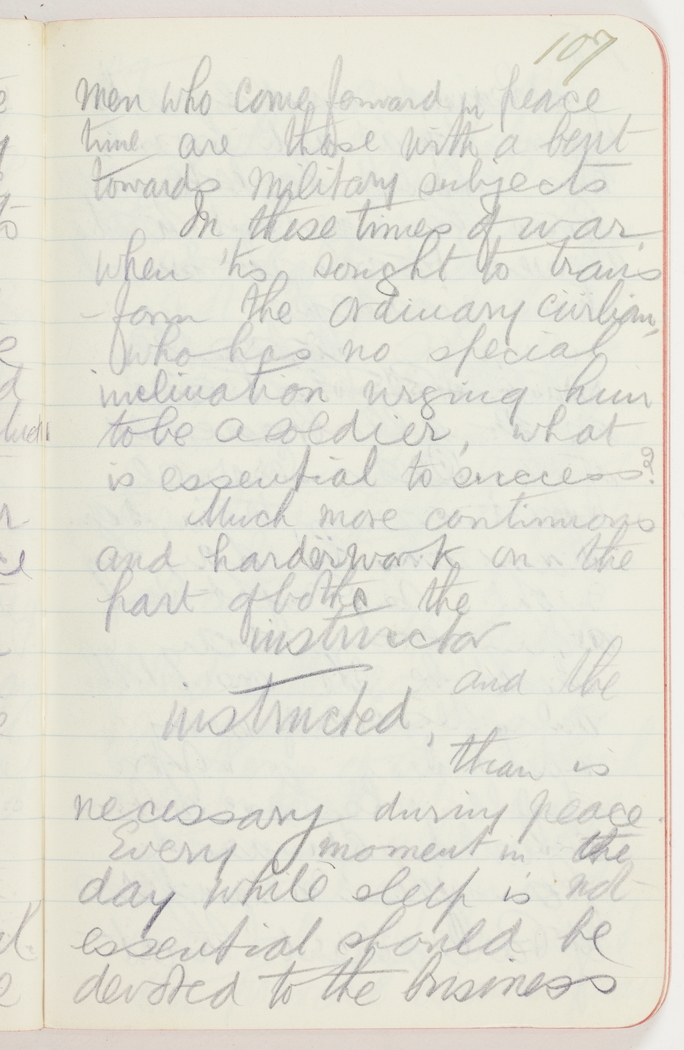 107
men who come forward in peace
time are those with a bent
towards military subjects
In these times of war,
when 'tis sought to trans
-form the ordinary civilian,
who has no special
inclination urging him
to be a soldier, what
is essential to success?
Much more continuous
and harder work on the
part of both the
instructor
and the
instructed,
than is
necessary during peace.
Every moment in the
day while sleep is not
essential should be
devoted to the business